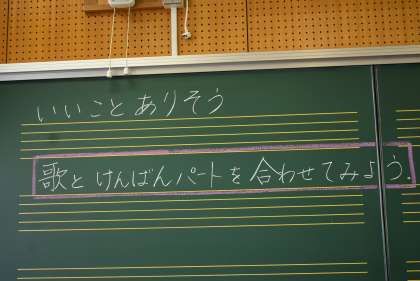 いいことありそう
歌とけんばんパートを合わせてみよう.